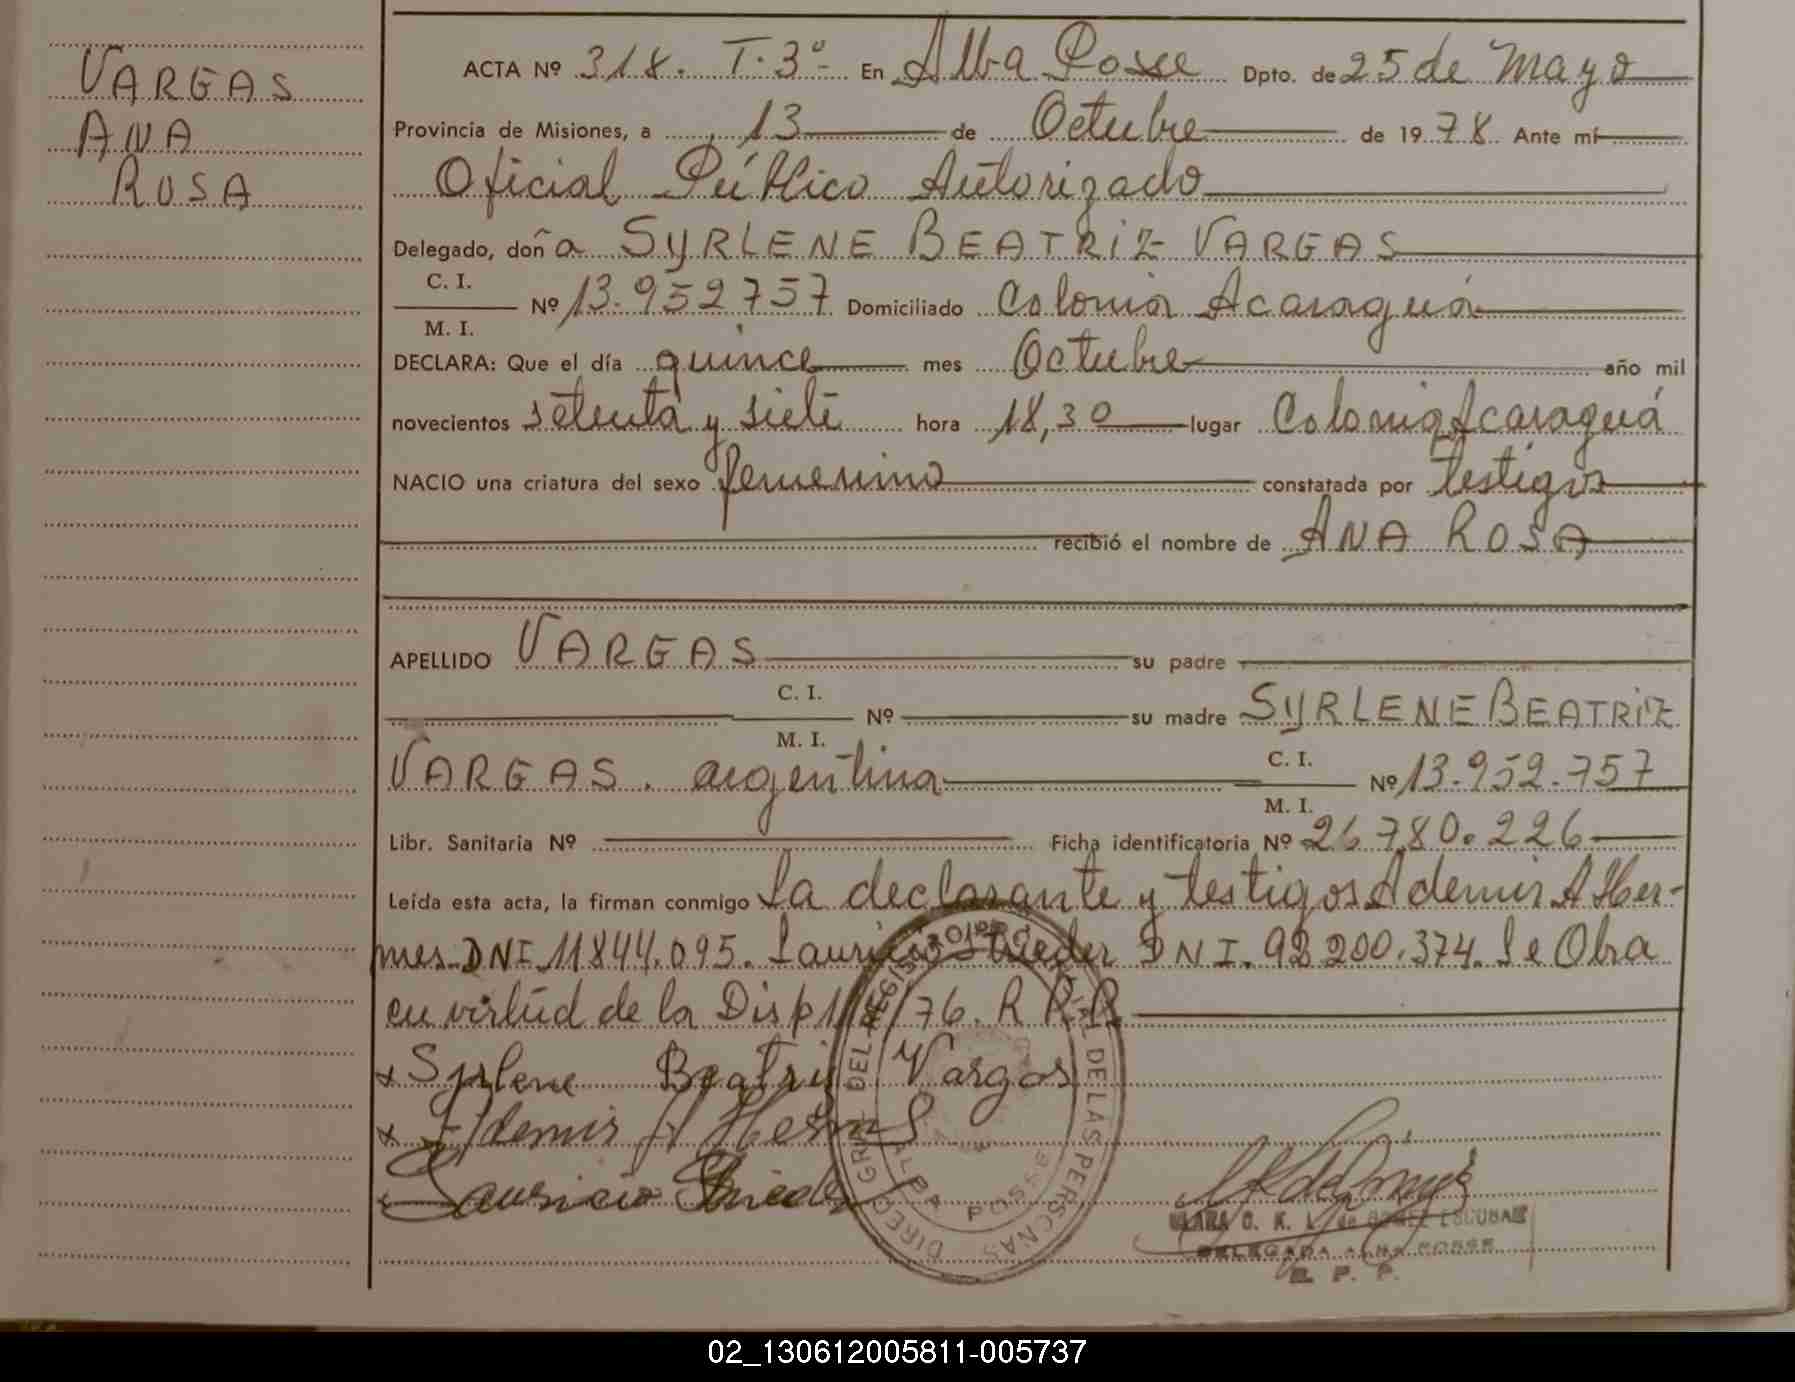 VARGAS
ANA
ROSA
ACTA Nº 318. T. 3º- En Alba Posse Dpto. de 25 de Mayo
Provincia de Misiones, a 13 de Octubre de 1978 Ante mí
Oficial Público Autorizado
Delegado, doña SYRLENE BEATRIZ VARGAS
C. I.
Nº 13.952757 Domiciliado Colonia Acaraguá
M. I.
DECLARA: Que el día quince mes Octubre año mil
novecientos setenta y siete hora 18,30 lugar Colonia Acaraguá
NACIO una criatura del sexo femenino constatada por testigos
recibió el nombre de ANA ROSA
APELLIDO VARGAS su padre
C. I.
Nº su madre SYRLENE BEATRIZ
M. I.
VARGAS. argentina
C. I.
Nº 13.952.757
M. I.
Libr. Sanitaria Nº Ficha identificatoria Nº 26.780.226
Leída esta acta, la firman conmigo la declarante y testigos Ademir A Her-
mes DNI 11844.095. Lauricio DNI. 92 200.374. Se Obra
en virtud de la Disp /76. R.P.P.
x Syrlene Beatriz Vargas
x Ademir A Hermes
Lauricio
DIREC. GRAL. DEL REGISTRO PROVINCIAL DE LAS PERSONAS
ALBA POSSE
CLARA O. K. L. de GOMEZ ESCOBAR
DELEGADA ALBA POSSE
R. P. P.
02_130612005811-005737